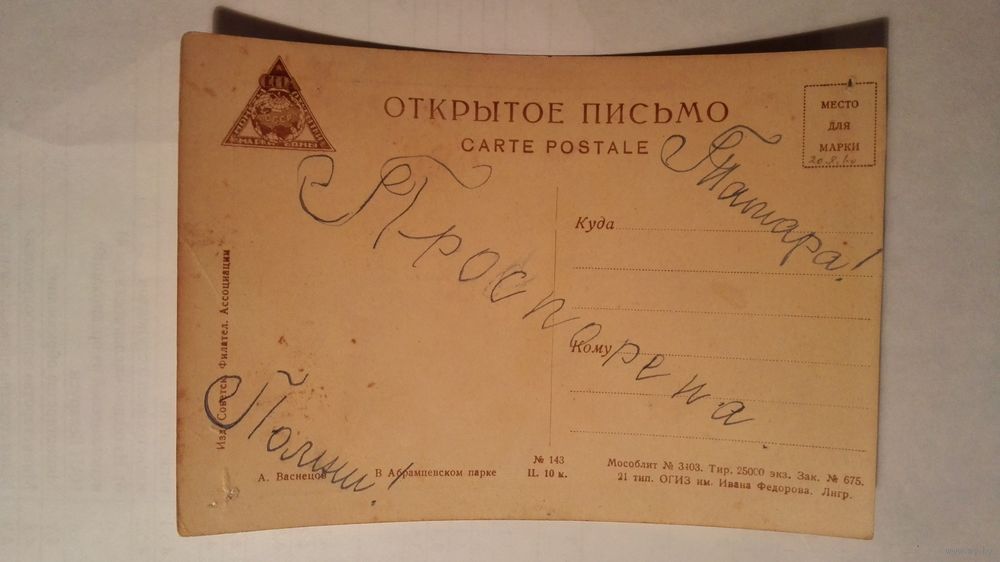 СССР
ОТКРЫТОЕ ПИСЬМО
CARTE POSTALE
МЕСТО
ДЛЯ
МАРКИ
Тамара!
Куда
Кому
Помни!
Изд. Советск. Филател. Ассоциации
А. Васнецов
В Абрамцевском парке
№ 143
Ц. 10 к.
Мособлит № 3403. Тир. 25000 экз. Зак. № 675.
21 тип. ОГИЗ им. Ивана Федорова. Лнгр.